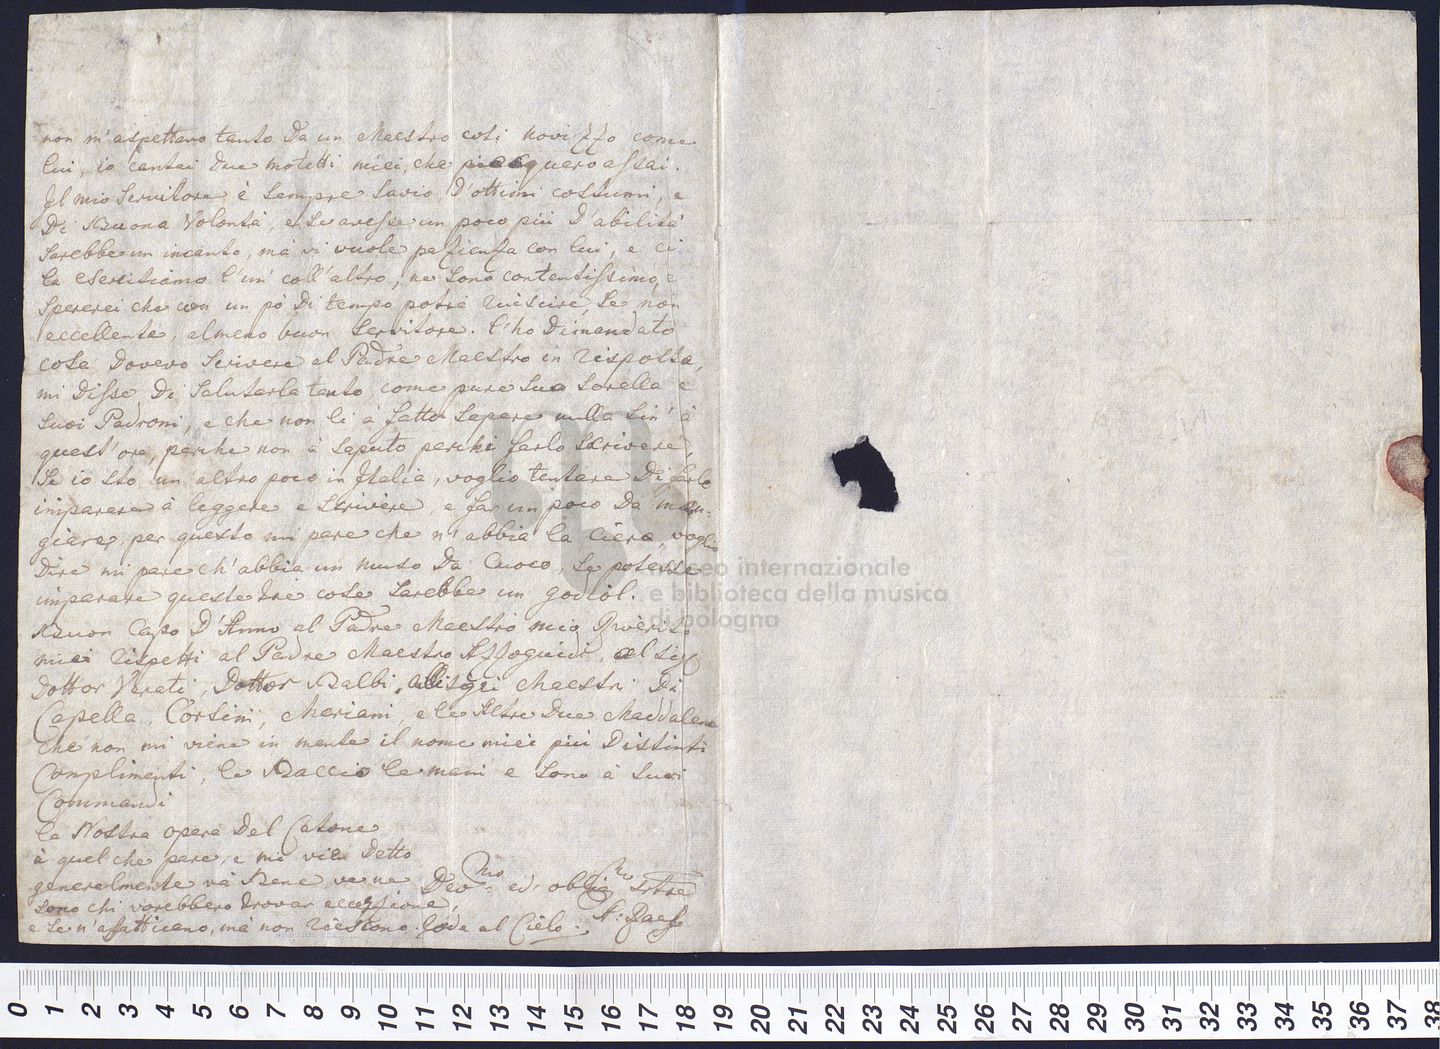 non m'aspettavo tanto da un Maestro così novizzo come
lui, io cantai due motetti miei, che piacquero assai.
Il mio Servitore è sempre savio, d'ottimi costumi, e
di Buona Volontà, e se avesse un poco più d'abilità
sarebbe un incanto, ma vi vuole pazienza con lui, e ci
la esercitiamo l'un' coll'altro, ne sono contentissimo, e
spererei che con un pò di tempo potrà riuscire, se non
eccellente, almeno buon Servitore. l'ho dimandato
cosa dovevo scrivere al Padre Maestro in risposta,
mi disse di salutarla tanto, come pure sua sorella e
suoi Padroni, e che non li à fatto sapere nulla sin' à
quest'ora, perche non à saputo perchi farlo scrivere,
se io sto un altro poco in Italia, voglio tentare di farlo
imparare à leggere e scrivere, e far un poco da man-
giare, per questo mi pare che n'abbia la ciera, voglio
dire mi pare ch'abbia un muso da Cuoco, se potesse
imparare queste tre cose sarebbe un godiol.
Buon Capo d'Anno al Padre Maestro mio
miei rispetti al Padre Maestro al Sig
Dottor Verati, Dottor Balbi, alli sgri Maestri di
Capella, Corsini, Mariani, e le Altre due Maddalene
che non mi viene in mente il nome miei più distinti
Complimenti, le Baccio le mani e sono à suoi
Commandi
la Nostra opera del Catone
à quel che pare, e mi vien detto
generalmente và Bene ve ne Devmo ed' obblgmo
sono chi vorebbero trovar eccezzione,
e se n'affaticano, mà non riestono. lode al Cielo.
museo internazionale
e biblioteca della musica
di bologna
0 1 2 3 4 5 6 7 8 9 10 11 12 13 14 15 16 17 18 19 20 21 22 23 24 25 26 27 28 29 30 31 32 33 34 35 36 37 38